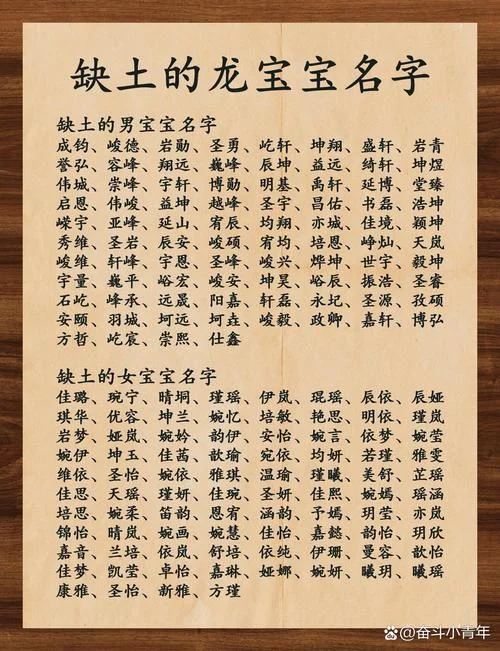 缺土的龙宝宝名字
缺土的男宝宝名字
成钧、峻德、岩勋、圣勇、屹轩、坤翔、盛轩、岩青
誉弘、容峰、翔远、巍峰、辰坤、益远、绮轩、坤煜
伟城、崇峰、宇轩、博勋、明基、禹轩、延博、堂臻
启恩、伟峻、益坤、越峰、圣宇、昌佑、书磊、浩坤
嵘宇、亚峰、延山、宥辰、均翔、亦城、佳境、颖坤
秀维、圣岩、辰安、峻硕、宥均、培恩、峥灿、天岚
峻维、轩峰、宇恩、圣峰、峻兴、烨坤、世宇、毅坤
宇量、巍平、峪宏、峻安、坤昊、峪辰、振浩、圣睿
石屹、峰承、远晟、阳嘉、轩磊、永圮、圣源、孜硕
安颐、羽城、坷远、坷垚、峻毅、政卿、嘉轩、博弘
方哲、屹宸、崇熙、仕鑫
缺土的女宝宝名字
佳璐、琬宁、晴坰、瑾瑶、伊岚、琨瑶、辰依、辰娅
琪华、优容、坤兰、婉忆、培敏、艳思、明依、瑾岚
岩梦、娅岚、婉妗、韵伊、安怡、婉言、依梦、婉莹
婉伊、坤玉、佳茜、歆瑜、宛依、均妍、若瑾、雅雯
维依、圣怡、婉依、雅琪、温瑜、瑾曦、美舒、芷瑶
佳思、天瑶、瑾妍、佳琬、圣妍、佳熙、婉嫣、瑶涵
培思、婉柔、笛韵、恩宥、涵韵、予嫣、玥莹、亦岚
锦怡、晴岚、婉画、婉慧、佳怡、嘉懿、韵怡、玥欣
嘉音、兰培、依岚、舒培、依纯、伊珊、曼容、歆怡
佳梦、凯莹、卓怡、嘉琳、娅娜、婉妍、曦玥、曦瑶
康雅、圣怡、新雅、方瑾
奋斗小青年